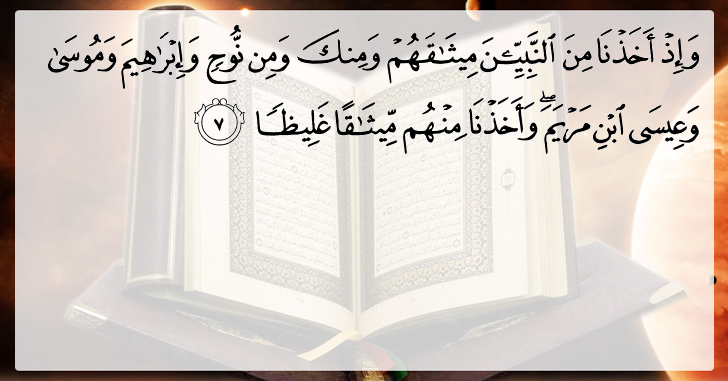 وَإِذْ أَخَذْنَا مِنَ ٱلنَّبِيِّـۧنَ مِيثَـٰقَهُمْ وَمِنكَ وَمِن نُّوحٍ وَإِبْرَٰهِيمَ وَمُوسَىٰ
وَعِيسَى ٱبْنِ مَرْيَمَ ۖ وَأَخَذْنَا مِنْهُم مِّيثَـٰقًا غَلِيظًا ٧